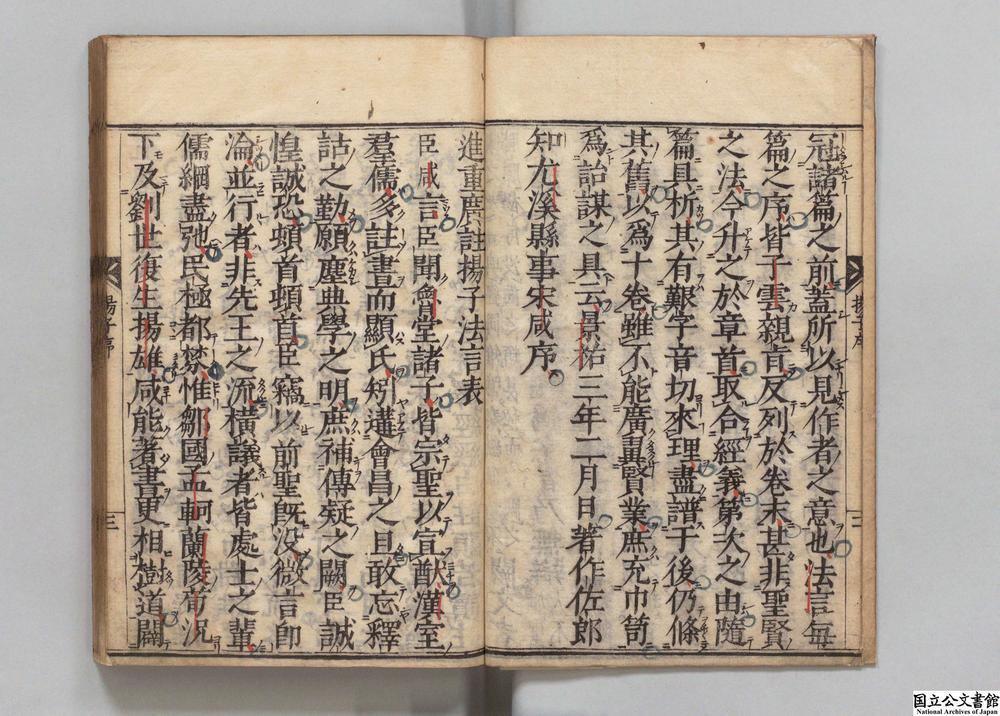 冠諸篇之前蓋所以見作者之意也法言每
篇之序皆子雲親旨反列於卷末甚非聖賢
之法今升之於章首取合經義第次之由隨
篇具析其有艱字音切來理盡譜于後仍條
其舊以爲十卷雖不能廣翼賢業庶充巾笥
爲詒謀之具云景祐三年二月日著作佐郎
知尤溪縣事宋咸序
進重廣註揚子法言表
臣咸言臣聞會堂諸子皆宗聖以宣猷漢室
羣儒多註書而顯氏矧遘會昌之旦敢忘釋
詁之勤願塵典學之明庶補傳疑之闕臣誠
惶誠恐頓首頓首臣竊以前聖既没微言卽
淪並行者非先王之流橫議者皆處士之輩
儒綱盡弛民極都棼惟鄒國孟軻蘭陵荀况
下及劉世復生揚雄咸能著書更相樹道闢
揚子序
三
揚子序
三
国立公文書館
National Archives of Japan